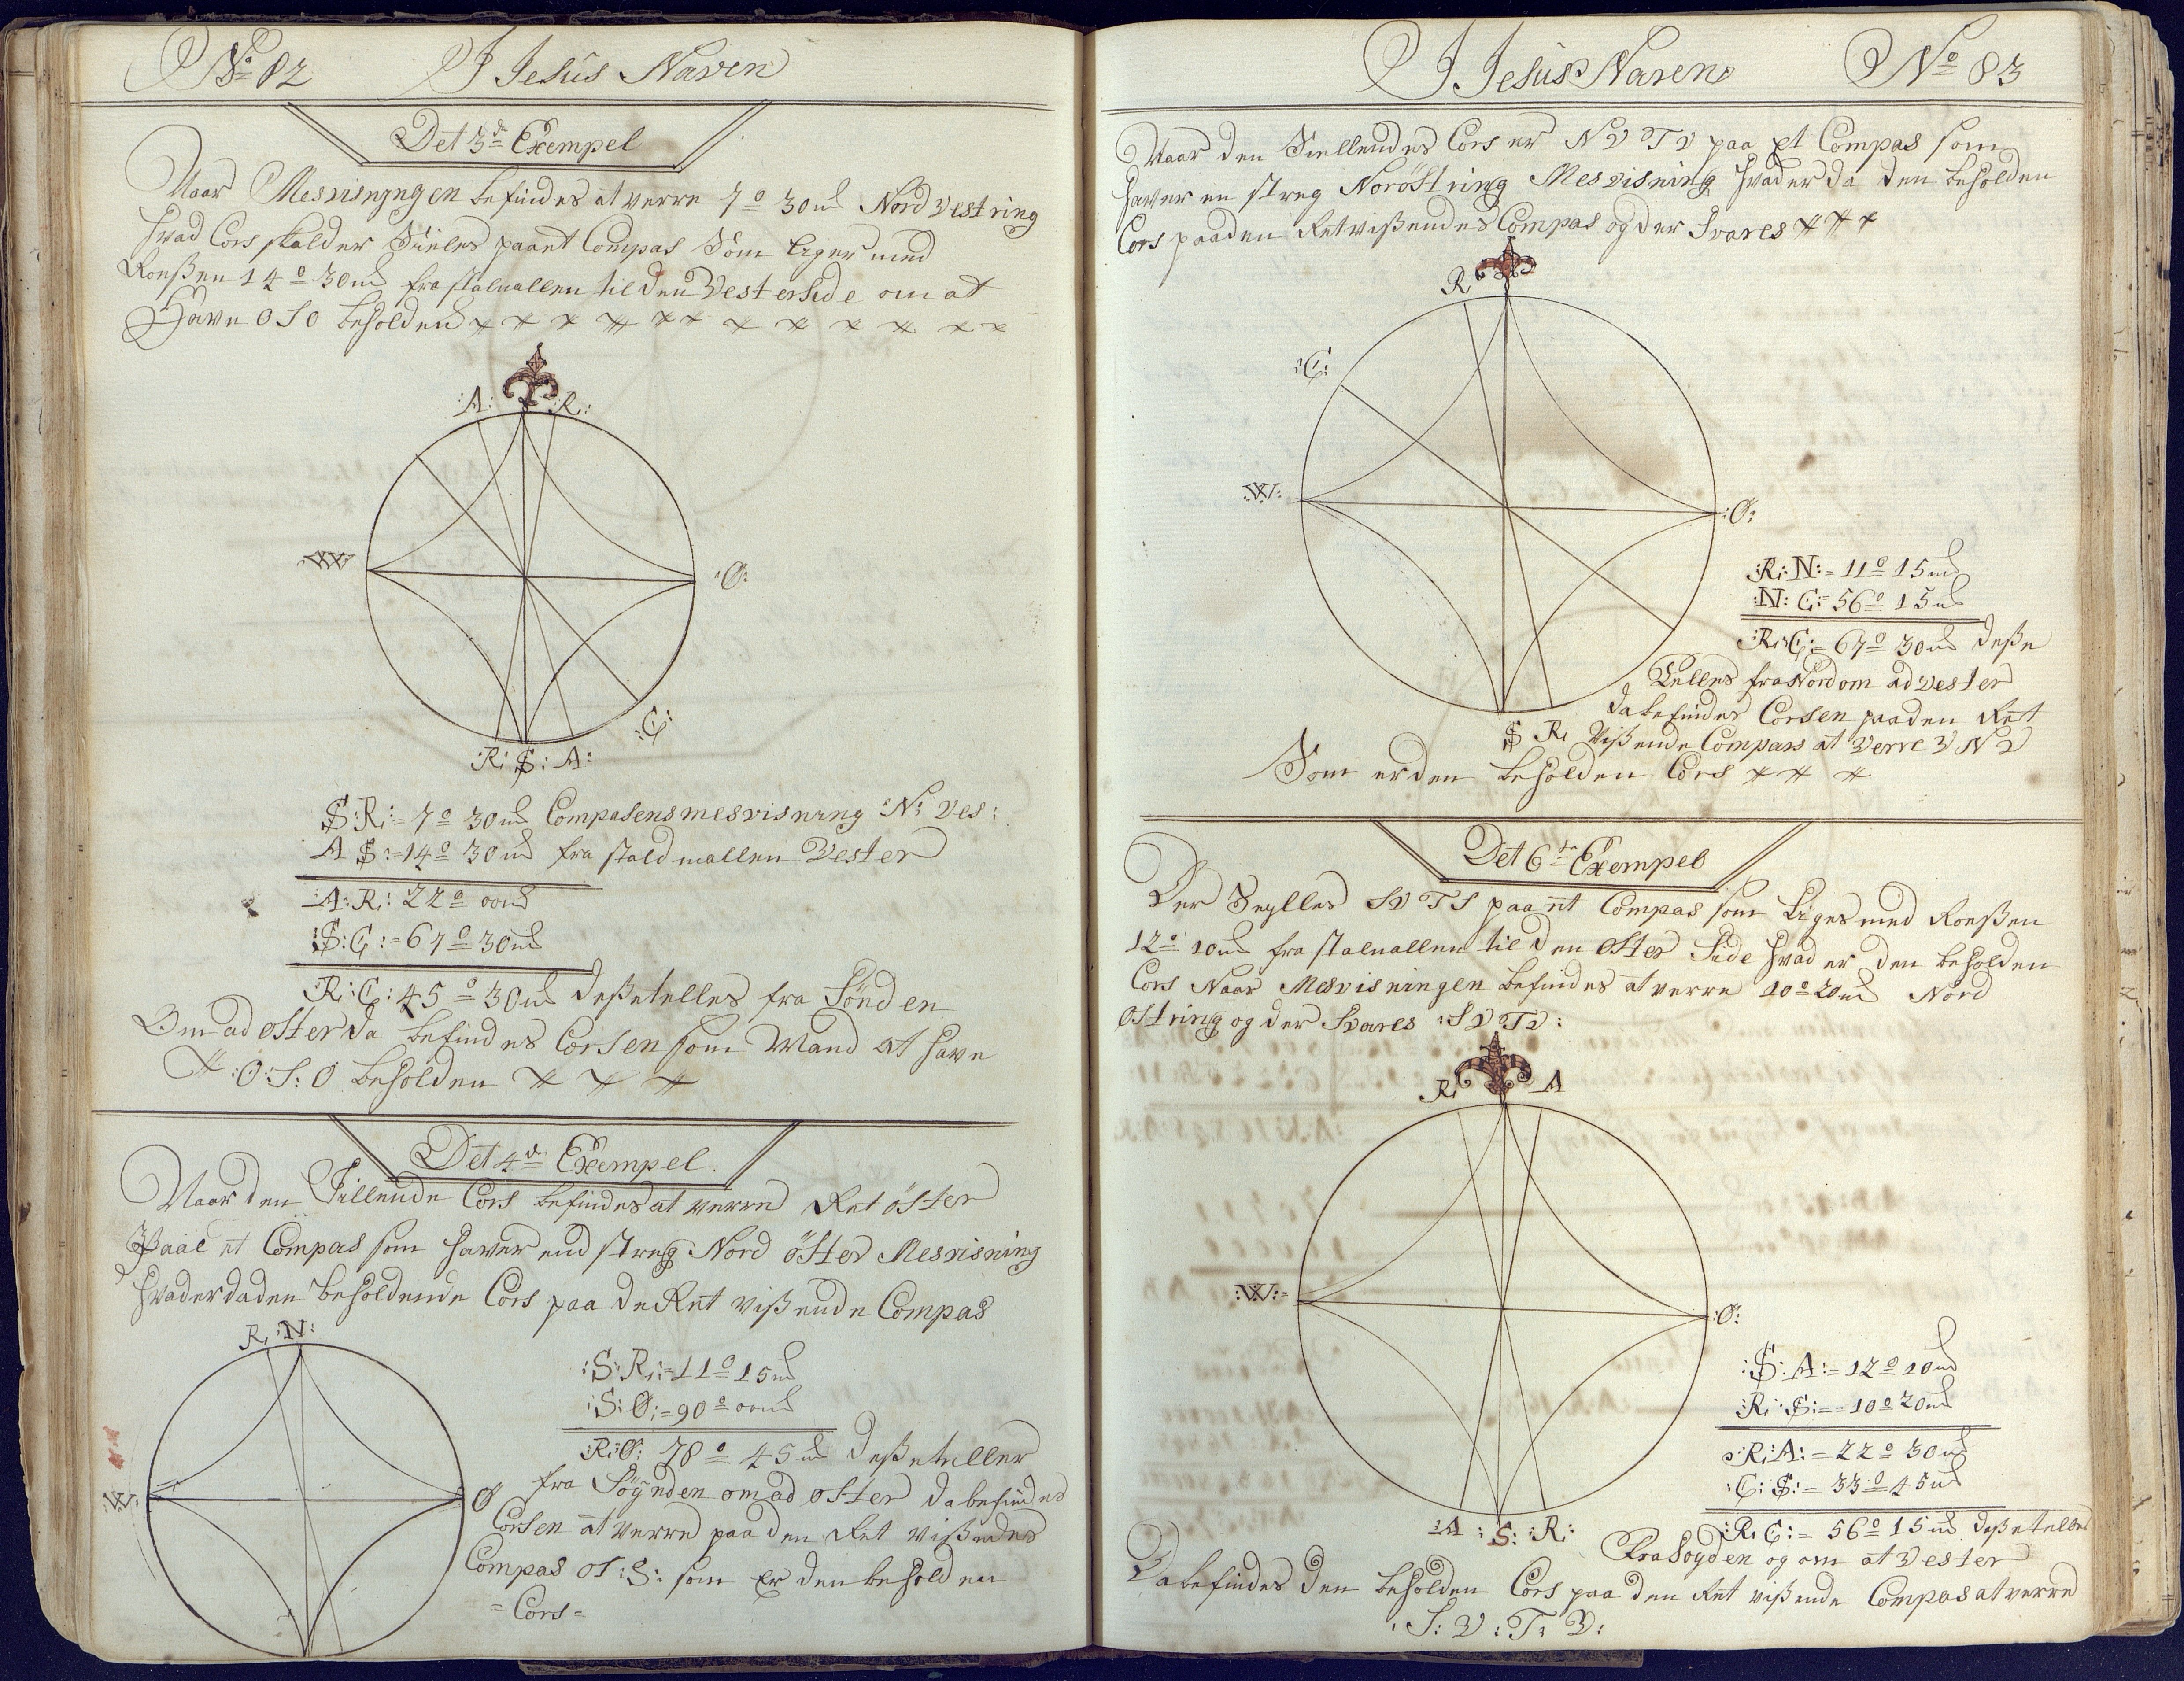 No 82 I Jesus Naven
Det 3de Exempel
Naar Mesvisningen befindes at verre 7° 30m Nord Vest ring
hvad Cors skal der Siieles paa et Compas Som liger med
Roeßen 14° 30m fra staluallen til den Vester Side om at
Have O S O beholden
:A: :R:
:W: :Ø:
:C:
:R: S: A:
S:R:= 7° 30m Compasens mesvisning N: Ves:
A S:=14° 30m fra stald nallen Vester
:A:R: 22° 00m
:S:C:=67° 30m
:R:C: 45° 30m deße telles fra Sønden
Om ad oster da befindes Corsen som Mand at have
:O:S:O beholden
Det 4de Exempel.
Naar den Sillende Cors befindes at verre Ret öster
Paa et Compas som haver end streg Nord öster Mesvisning
hvad er da den beholdende Cors paa de Ret vißende Compas
R: :N:
:W: Ø
:S:R:=11° 15m
:S:Ø:=90° 00m
:R:Ø: 78° 45m deße teller
fra Söynden om ad oster da befindes
Corsen at verre paa den Ret vißendes
Compas OT:S: som Er den beholden
=Cors=
I Jesus Naven No 83
Naar den Siellendes Cors er NV TV paa et Compas som
haver en streg Noröst ring Mesvisning hvad er da den beholden
Cors paa den Ret vißendes Compas og der Svares
R
:C:
:W: :Ø:
:R:N:= 11° 15m
:N: C:= 56° 15m
:R:C:= 67° 30m deße
telles fra Nord om ad Vester
da befindes Corsen paa den Ret
S R: Vißende Compass at Verre V N V
Som er den beholden Cors
Det 6te Exempel
Der Seylles SV TS paa et Compas som Liges med Roeßen
12° 10m fra staluallen til den Oster Side hvad er den beholden
Cors Naar Mesvisningen befindes at verre 10° 20m Nord
Ost ring og der Svares :SV TV:
R: A
:W: :Ø:
:S: A:= 12° 10m
:R: S:= 10° 20m
:R:A:= 22° 30m
:C: S:= 33° 45m
A : S: :R:
:R: C:= 56° 15m deße telles
Fra Søyden og om at Vester
Da befindes den beholden Cors paa den Ret vißende Compas at verre
:S: V: T: V: